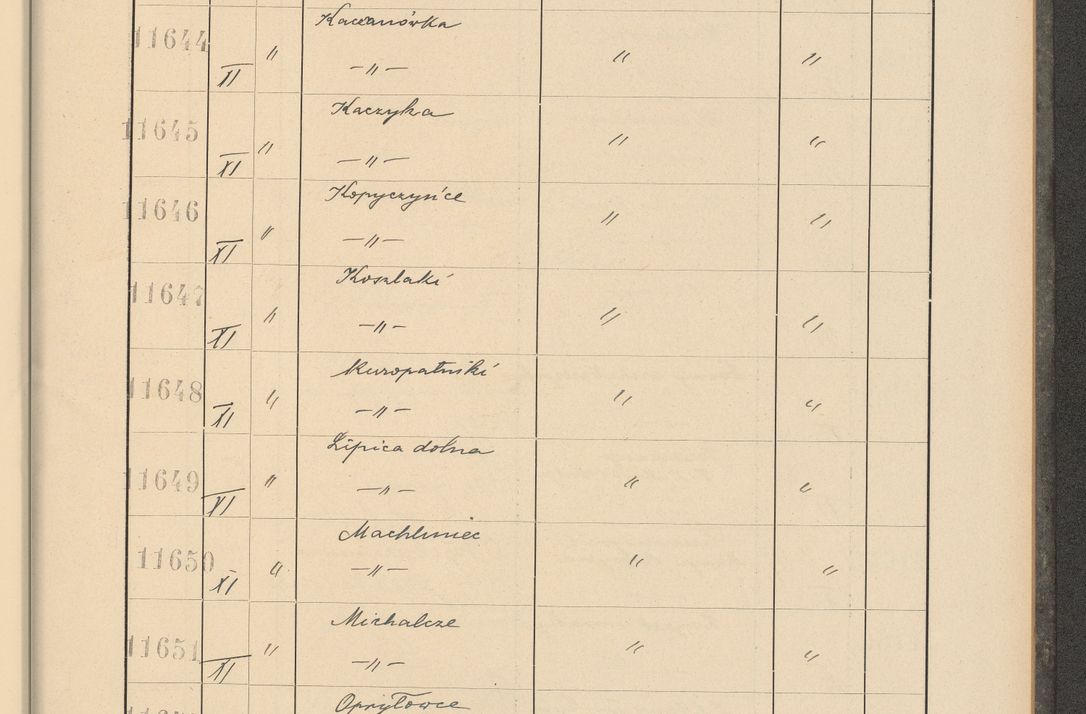 11644 Kaczanówka
XI " —"— " "
11645 Kaczyka
XI " —"— " "
11646 Kopyczyńce
XI " —"— " "
11647 Koszlaki
XI " —"— " "
11648 Kuropatniki
XI " —"— " "
11649 Lipica dolna
XI " —"— " "
11650 Machliniec
XI " —"— " "
11651 Michalcze
XI " —"— " "
Opryłowce